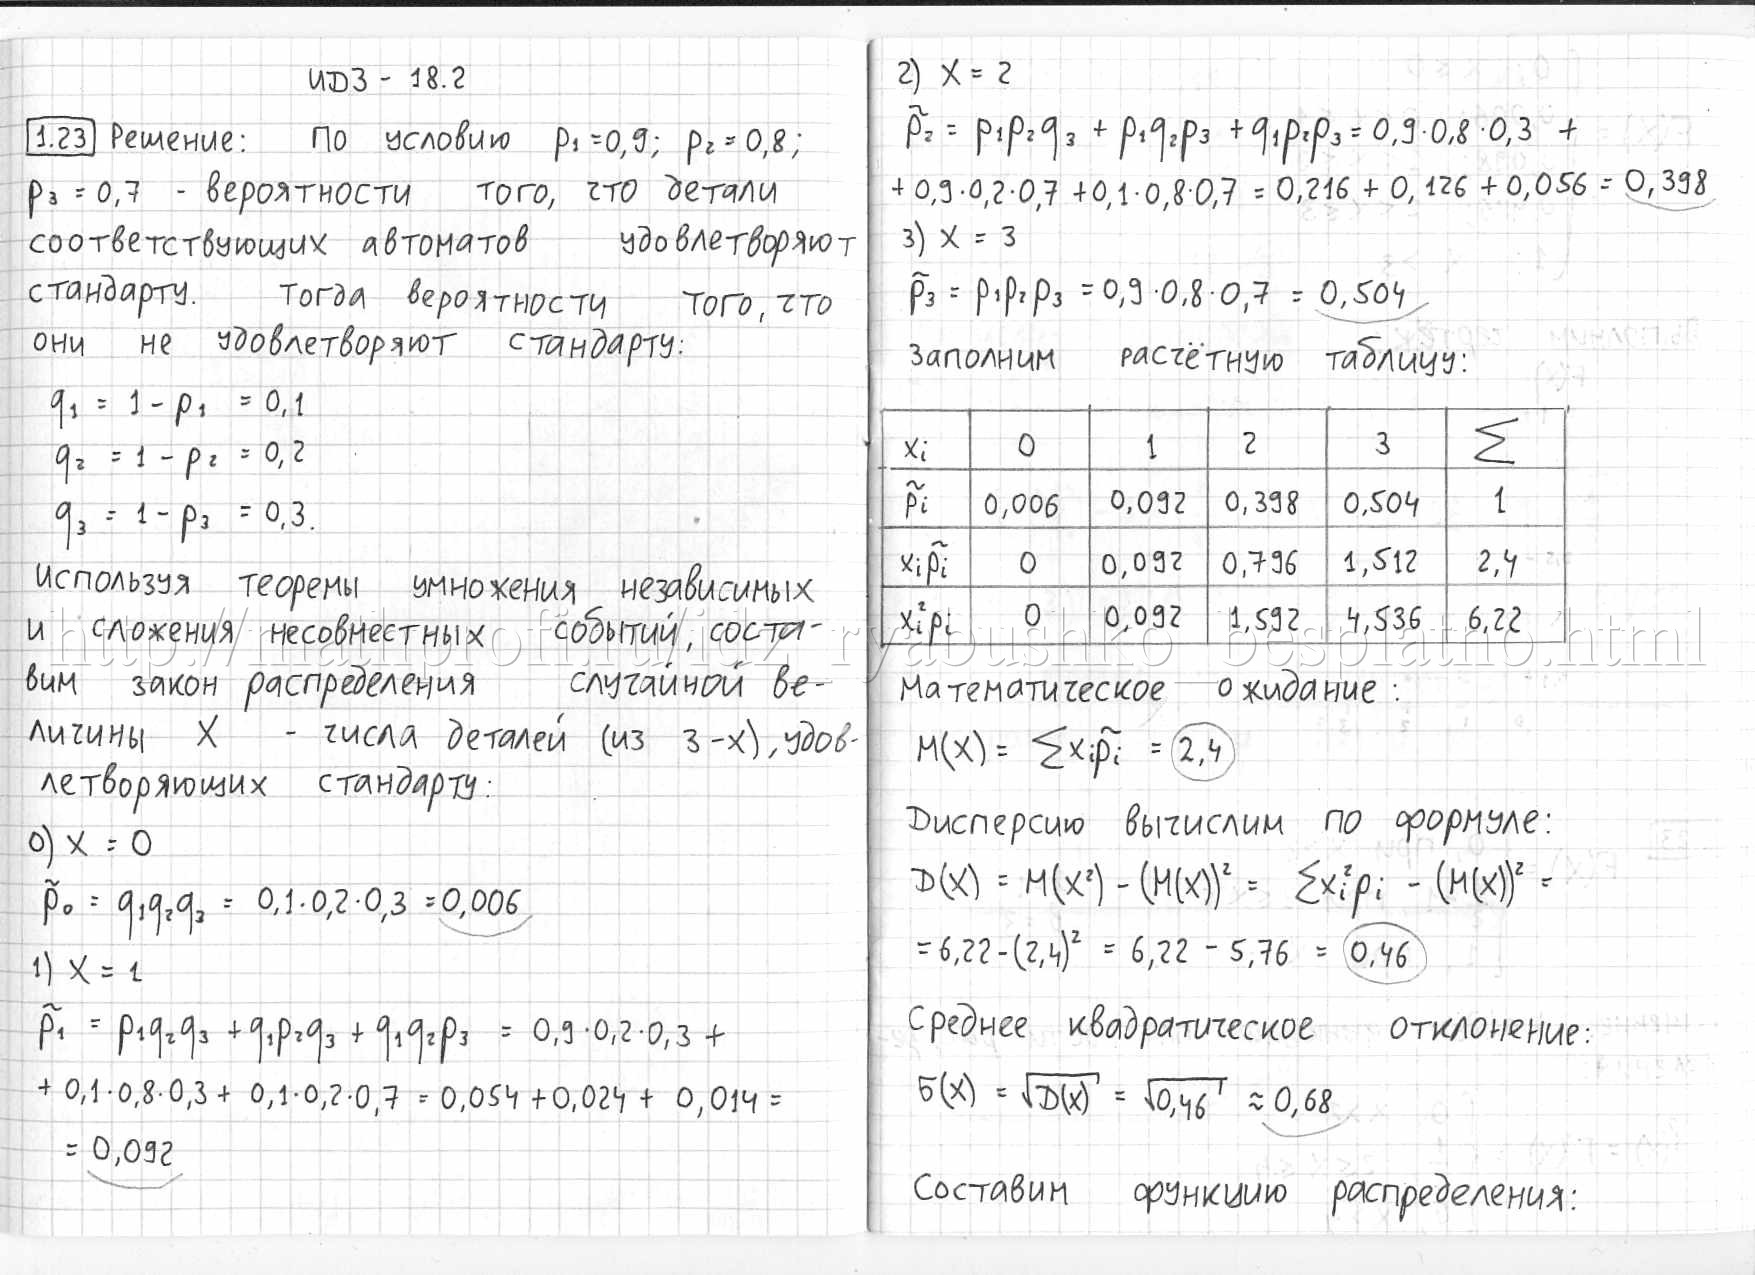 ИДЗ - 18.2
1.23 Решение: По условию p₁=0,9; p₂=0,8;
p₃=0,7 - вероятности того, что детали
соответствующих автоматов удовлетворяют
стандарту. Тогда вероятности того, что
они не удовлетворяют стандарту:
q₁ = 1-p₁ = 0,1
q₂ = 1-p₂ = 0,2
q₃ = 1-p₃ = 0,3.
Используя теоремы умножения независимых
и сложения несовместных событий, соста-
вим закон распределения случайной ве-
личины X - числа деталей (из 3-х), удов-
летворяющих стандарту:
0) X = 0
p̃₀ = q₁q₂q₃ = 0,1·0,2·0,3 = 0,006
1) X = 1
p̃₁ = p₁q₂q₃ + q₁p₂q₃ + q₁q₂p₃ = 0,9·0,2·0,3 +
+ 0,1·0,8·0,3 + 0,1·0,2·0,7 = 0,054 + 0,024 + 0,014 =
= 0,092
2) X = 2
p̃₂ = p₁p₂q₃ + p₁q₂p₃ + q₁p₂p₃ = 0,9·0,8·0,3 +
+ 0,9·0,2·0,7 + 0,1·0,8·0,7 = 0,216 + 0,126 + 0,056 = 0,398
3) X = 3
p̃₃ = p₁p₂p₃ = 0,9·0,8·0,7 = 0,504
Заполним расчётную таблицу:
xᵢ 0 1 2 3 Σ
p̃ᵢ 0,006 0,092 0,398 0,504 1
xᵢp̃ᵢ 0 0,092 0,796 1,512 2,4
xᵢ²pᵢ 0 0,092 1,592 4,536 6,22
Математическое ожидание:
M(X) = Σxᵢp̃ᵢ = 2,4
Дисперсию вычислим по формуле:
D(X) = M(X²) - (M(X))² = Σxᵢ²pᵢ - (M(X))² =
= 6,22 - (2,4)² = 6,22 - 5,76 = 0,46
Среднее квадратическое отклонение:
б(X) = √D(X) = √0,46 ≈ 0,68
Составим функцию распределения:
http://mathprofi.ru/idz_ryabushko_besplatno.html